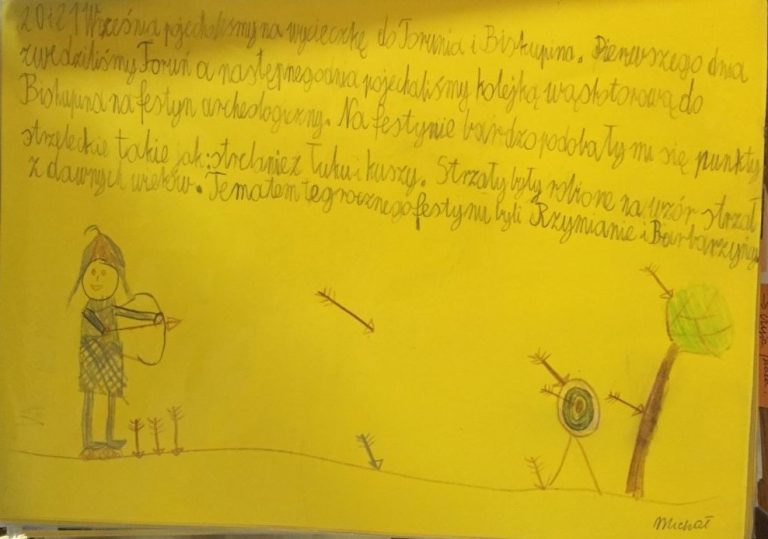 20 i 21 Września pojechaliśmy na wycieczkę do Torunia i Biskupina. Pierwszego dnia
zwiedziliśmy Toruń a następnego dnia pojechaliśmy kolejką wąskotorową do
Biskupina na festyn archeologiczny. Na festynie bardzo podobały mi się punkty
strzeleckie takie jak: strzelanie z łuku i kuszy. Strzały były robione na wzór strzał
z dawnych wieków. Tematem tegorocznego festynu byli Rzymianie i Barbarzyńcy.
Michał